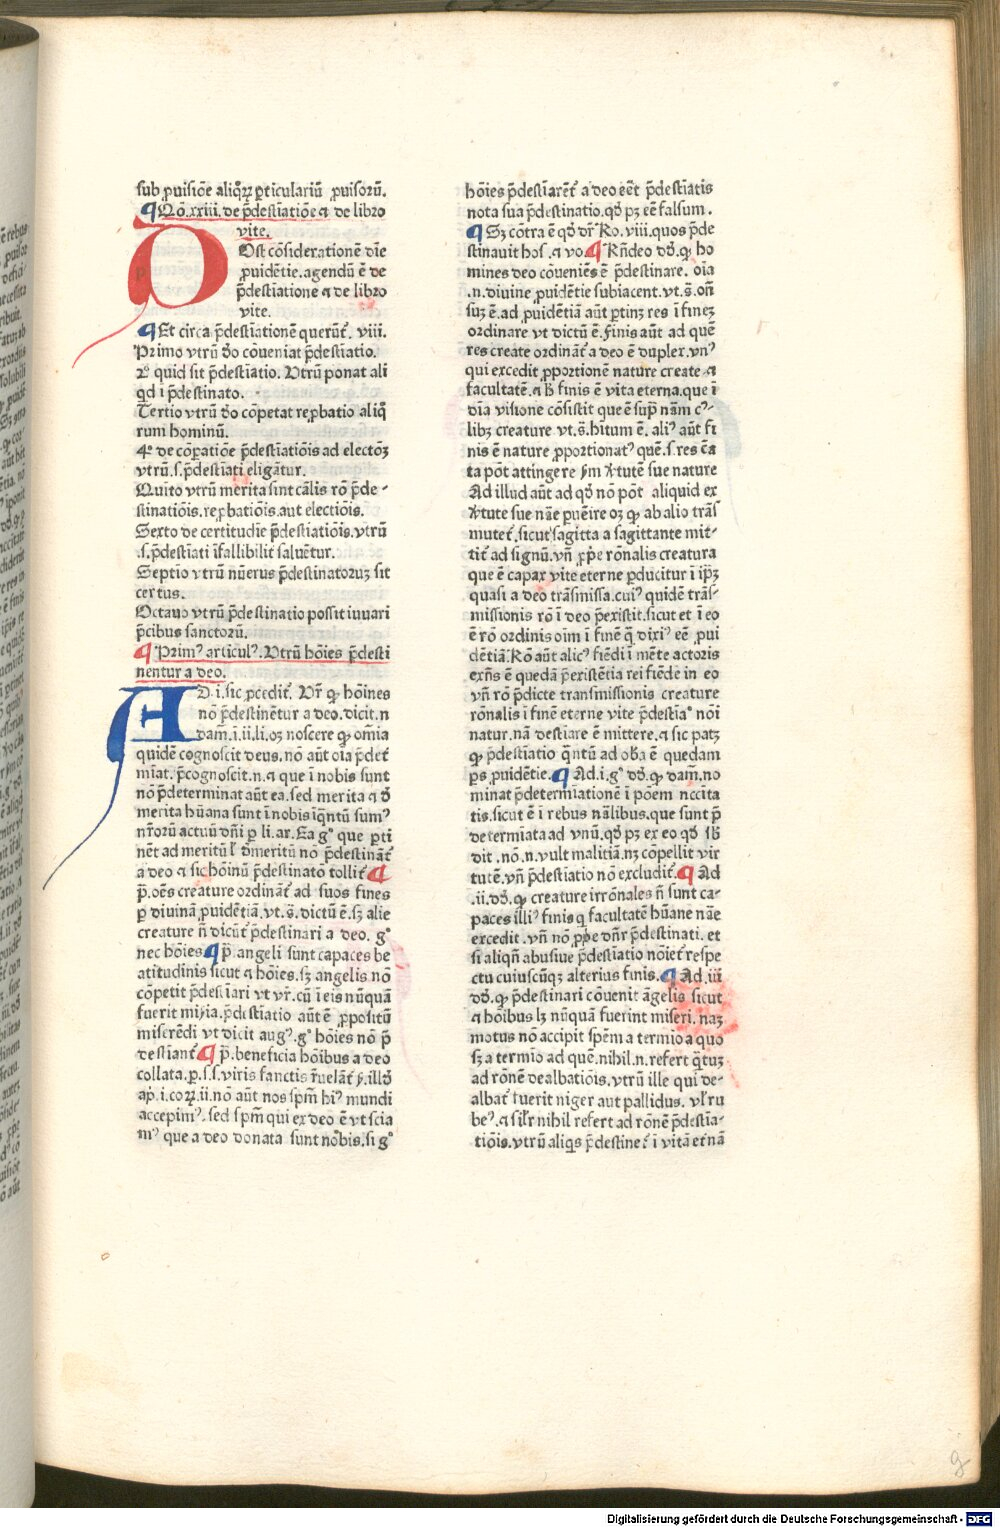 sub ꝓuisiõe aliq̃ꝝ ꝑticulariũ ꝓuisorũ.
¶ Qõ.xxiii. de p̃destiatiõe ⁊ de libro
vite.
Ost cõsiderationẽ diẽ
ꝓuidẽtie.agendũ ẽ de
p̃destiatione ⁊ de libro
vite.
¶ Et circa p̃destiationẽ querũt᷑. viii.
Primo vtrũ d̃o cõueniat p̃destiatio.
2º quid sit p̃destiatio. Utrũ ponat ali
qd i p̃destinato.
Tertio vtrũ d̃o cõpetat reꝓbatio aliq̃
rum hominũ.
4º de cõpatiõe p̃destiatiõis ad electõꝫ
vtrũ.s.p̃destiati eligãtur.
Quito vtrũ merita sint cãlis rõ p̃de-
stinatiõis.reꝓbatiõis.aut electiõis.
Sexto de certitudie p̃destiatiõis.vtrũ
.s.p̃destiati ĩfallibilit᷑ saluẽtur.
Septio vtrũ nũerus p̃destinatoruꝫ sit
certus.
Octauo vtrũ p̃destinatio possit iuuari
p̃cibus sanctorũ.
¶ Primꝰ articulꝰ. Utrũ hõies p̃desti
nentur a deo.
D.i.sic ꝓcedit᷑. Ur̃ ꝙ hõines
nõ p̃destinẽtur a deo.dicit.n
dam̃.i.ii.li.oꝫ noscere ꝙ om̃ia
quidẽ cognoscit deus.nõ aũt oĩa p̃det᷑
miat.p̃cognoscit.n.⁊ que ĩ nobis sunt
nõ p̃determinat aũt ea.sed merita ⁊ d̃
merita hũana sunt ĩ nobis ĩq̃ntũ sumꝰ
nr̃orũ actuũ dñi ꝑ li.ar. Ea gº que ꝑti
nẽt ad meritũ l̃ d̃meritũ nõ p̃destinãt᷑
a deo ⁊ sic hõinũ p̃destinatõ tollit᷑ ¶
p̃.oẽs creature ordinãt᷑ ad suos fines
ꝑ diuinã ꝓuidẽtiã.vt.s̃.dictũ ẽ.sꝫ alie
creature ñ dicũt᷑ p̃destinari a deo. gº
nec hõies ¶ p̃. angeli sunt capaces be
atitudinis sicut ⁊ hõies.sꝫ angelis nõ
cõpetit p̃destiari vt vr̃.cũ ĩ eis nũquã
fuerit misia.p̃destiatio aũt ẽ ꝓpositũ
miserẽdi vt dicit augꝰ.gº hõies nõ p̃
destiant᷑ ¶ p̃. beneficia hõibus a deo
collata.ꝑ.s.s.viris sanctis r̃uelãt᷑ ẞ.illd̃
ap̃.i.coꝝ.ii.nõ aũt nos spm̃ hiꝰ mundi
accepimꝰ.sed spm̃ qui ex deo ẽ vt scia
mꝰ que a deo donata sunt nobis.si gº
hõies p̃destiarẽt᷑ a deo eẽt p̃destiatis
nota sua p̃destinatio.qd̃ pꝫ eẽ falsum.
¶ Sꝫ cõtra ẽ qd̃ dr̃ Ro.viii.quos p̃de
stinauit hos.⁊ vo. ¶ Rñdeo dd̃.ꝙ ho
mines deo cõueniẽs ẽ p̃destinare. oĩa
.n.diuine ꝓuidẽtie subiacent.vt.s̃.oñ
suꝫ ẽ.ad ꝓuidẽtiã aũt ꝑtinꝫ res ĩ finẽꝫ
ordinare vt dictũ ẽ.finis aũt ad quẽ
res create ordinãt᷑ a deo ẽ duplex.vnꝰ
qui excedit ꝓportionẽ nature create ⁊
facultatẽ.⁊ h̃ finis ẽ vita eterna.que ĩ
dĩa visione cõsistit que ẽ supᷓ nãm cꝰ-
libꝫ creature vt.s̃.hĩtum ẽ. aliꝰ aũt fi
nis ẽ nature ꝓportionatꝰ quẽ.s.res c̃a
ta põt attingere ẞm v̾tutẽ sue nature
Ad illud aũt ad qd̃ nõ põt aliquid ex
v̾tute sue nãe ꝑueĩre oꝫ ꝙ ab alio trãs
mutet᷑.sicut sagitta a sagittante mit-
tit᷑ ad signũ.vñ ꝓpe rõnalis creatura
que ẽ capax vite eterne ꝑducitur ĩ ip̃ꝫ
quasi a deo trãsmissa.cuiꝰ quidẽ trãs-
missionis rõ ĩ deo p̃existit.sicut et ĩ eo
ẽ rõ ordinis oĩm ĩ finẽ q̃ dixiꝰ eẽ ꝓui
dẽtiã. Rõ aũt alicꝰ fiẽdi ĩ mẽte actoris
exñs ẽ quedã p̃existẽtia rei fiẽde in eo
vñ rõ p̃dicte transmissionis creature
rõnalis ĩ finẽ eterne vite p̃destiaº noĩ
natur.nã destiare ẽ mittere.⁊ sic patꝫ
ꝙ p̃destiatio q̃ntũ ad ob̃a ẽ quedam
ꝑs ꝓuidẽtie. ¶ Ad.i.gº dd̃.ꝙ dam̃.no
minat p̃determĩationẽ ĩ põem nccĩta
tis.sicut ẽ ĩ rebus nãlibus.que sunt p̃
determĩata ad vnũ.qd̃ pꝫ ex eo qd̃ sb̃
dit.nõ.n.vult malitiã.nꝫ cõpellit vir
tutẽ.vñ p̃destiatio nõ excludit᷑. ¶ Ad
.ii.dd̃.ꝙ creature irrõnales ñ sunt ca-
paces illiꝰ finis q facultatẽ hũane nãe
excedit.vñ nõ ꝓpe dñr p̃destinati. et
si aliqñ abusiue p̃destiatio noĩet᷑ respe
ctu cuiuscũqꝫ alterius finis. ¶ Ad.iii
dd̃.ꝙ p̃destinari cõuenit ãgelis sicut
⁊ hoibus lꝫ nũquã fuerint miseri.naꝫ
motus nõ accipit spẽm a termio a quo
sꝫ a termio ad quẽ.nihil.n.refert q̃tuꝫ
ad rõnẽ dealbatiõis.vtrũ ille qui de-
albat᷑ fuerit niger aut pallidus. vl̃ ru
beꝰ.⁊ sil̃r nihil refert ad rõnẽ p̃destia-
tiõis.vtrũ aliqis p̃destinet᷑ ĩ vitã et̃nã
g
Digitalisierung gefördert durch die Deutsche Forschungsgemeinschaft - DFG